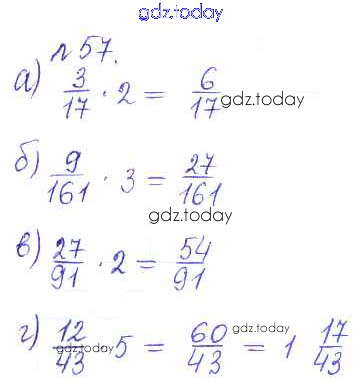 gdz.today
№57.
а) 3/17 · 2 = 6/17 gdz.today
б) 9/161 · 3 = 27/161
gdz.today
в) 27/91 · 2 = 54/91
г) 12/43 · 5 = 60/43 = 1 17/43
gdz.today
gdz.today